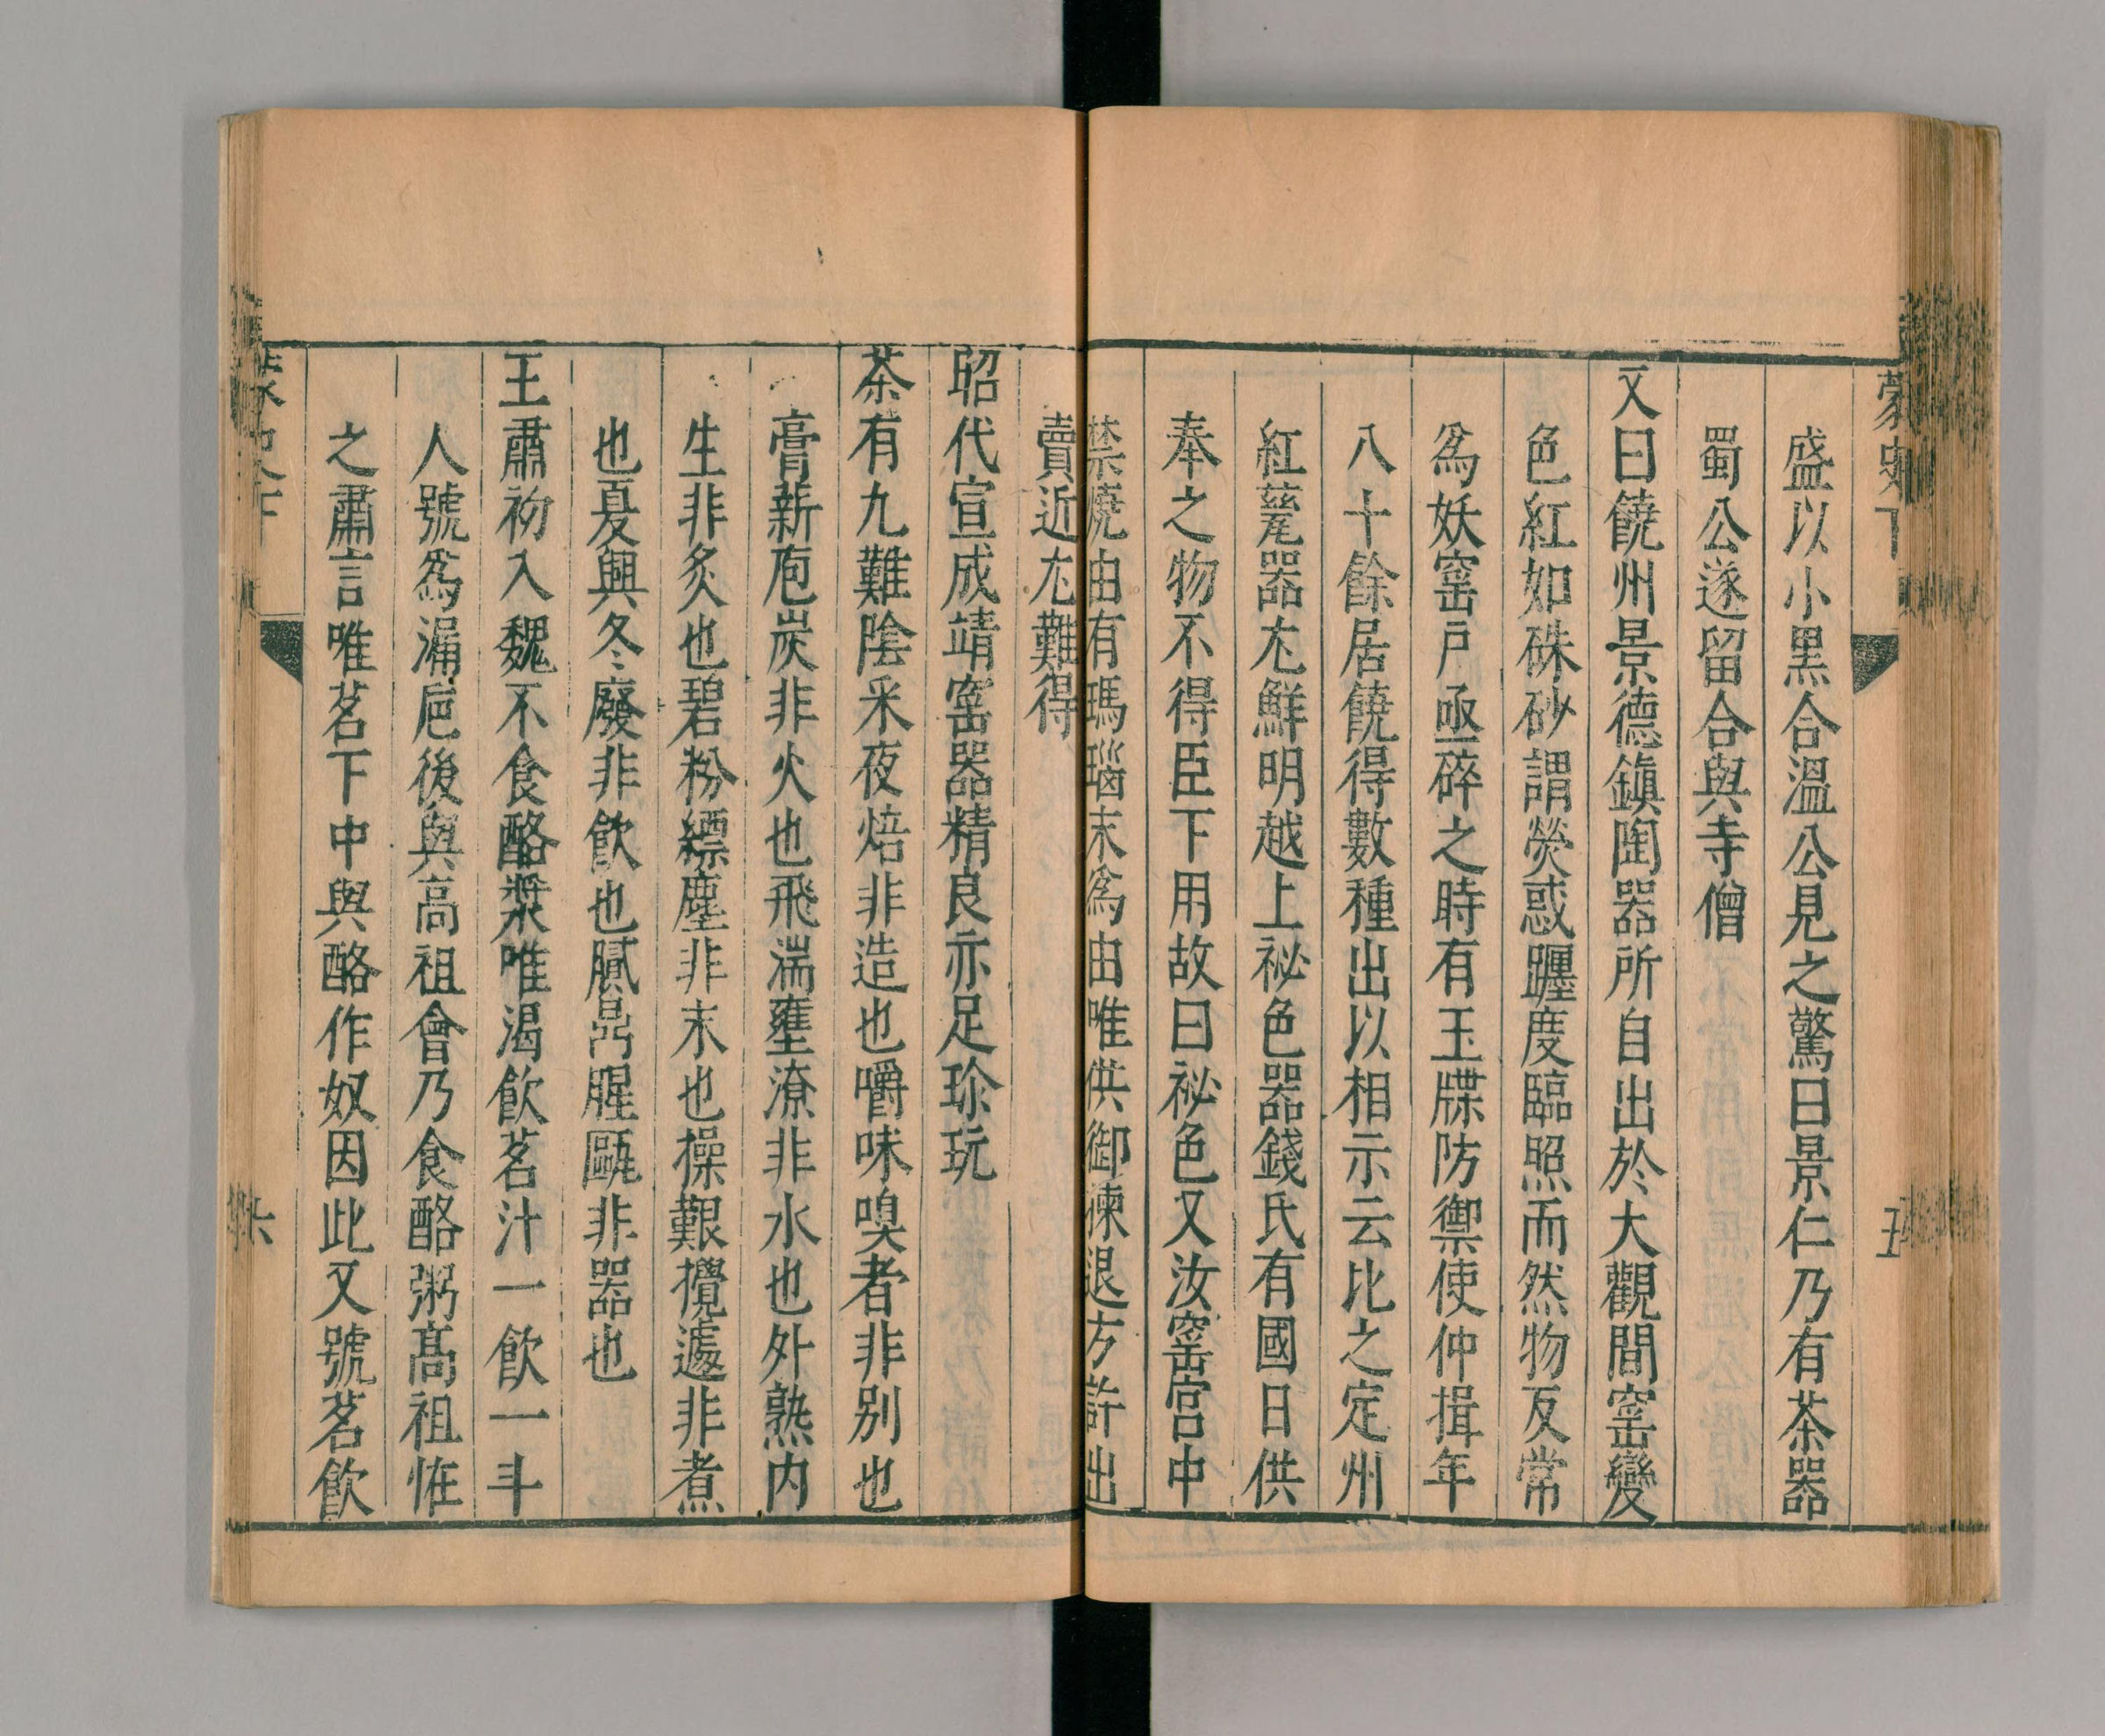 蒙史下
五
盛以小黑合溫公見之驚曰景仁乃有茶器
蜀公遂留合與寺僧
又曰饒州景德鎮陶器所自出於大觀間窑變
色紅如硃砂謂熒惑躔度臨照而然物反常
爲妖窑戶亟碎之時有玉牒防禦使仲揖年
八十餘居饒得數種出以相示云比之定州
紅甆器尤鮮明越上祕色器錢氏有國日供
奉之物不得臣下用故曰祕色又汝窑宫中
禁燒由有瑪瑙末爲由唯供御揀退方許出
賣近尤難得
昭代宣成靖窑器精良亦足珍玩
茶有九難陰采夜焙非造也嚼味嗅者非别也
膏薪庖炭非火也飛湍壅潦非水也外熟内
生非炙也碧粉縹塵非末也操艱攪遽非煮
也夏興冬廢非飲也膩鼎腥甌非器也
王肅初入魏不食酪漿唯渴飲茗汁一飲一斗
人號爲漏巵後與高祖會乃食酪粥高祖恠
之肅言唯茗下中與酪作奴因此又號茗飲
六